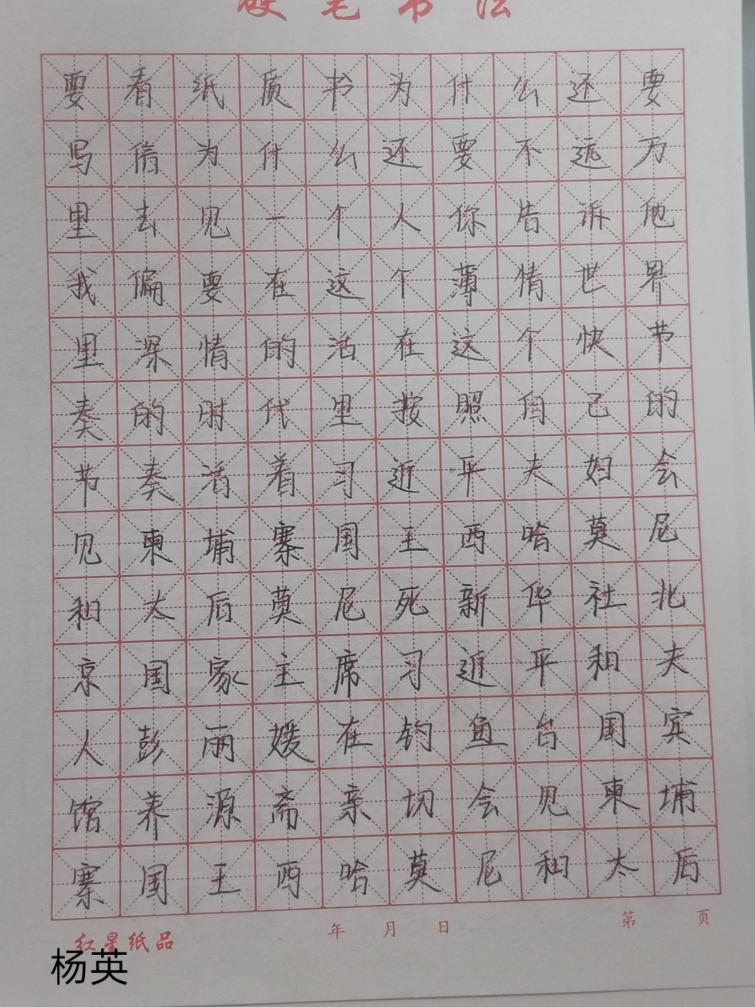 硬笔书法
要看纸质书为什么还要
写信为为什么还要不远万
里去见一个人你告诉他
我偏要在这个薄情世界
里深情的活在这个快节
奏的时代里按照自己的
节奏活着习近平夫妇会
见柬埔寨国王西哈莫尼
和太后莫尼死新华社北
京国家主席习近平和夫
人彭丽媛在钓鱼台国宾
馆养源斋亲切会见柬埔
寨国王西哈莫尼和太后
年 月 日 第 页
红星纸品
杨英